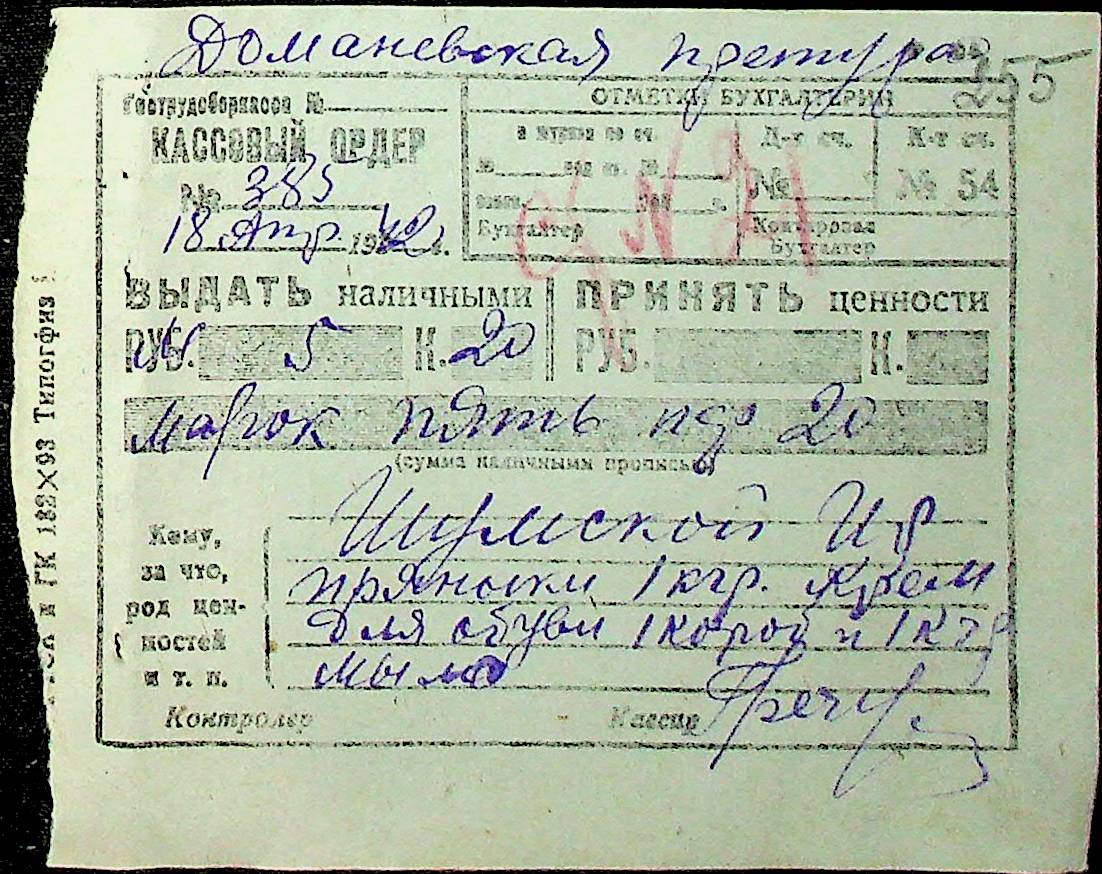 Доманевская претура
255
Гострудсберкасса №
КАССОВЫЙ ОРДЕР
№ 385
18 Апр 1942 г.
ОТМЕТКИ БУХГАЛТЕРИИ
Д-т сч.
К-т сч.
№
№ 54
Бухгалтер
Контировал
Бухгалтер
ВЫДАТЬ наличными
ПРИНЯТЬ ценности
РУБ. 5 К. 20
РУБ. К.
марок пять пф 20
(сумма наличными прописью)
Кому,
за что,
род цен-
ностей
и т. п.
Шумской Ир
пряники 1 кгр. Крем
для обуви 1 короб и 1 кгр
мыла
Контролер
Кассир
и ГК 182×93 Типогфия